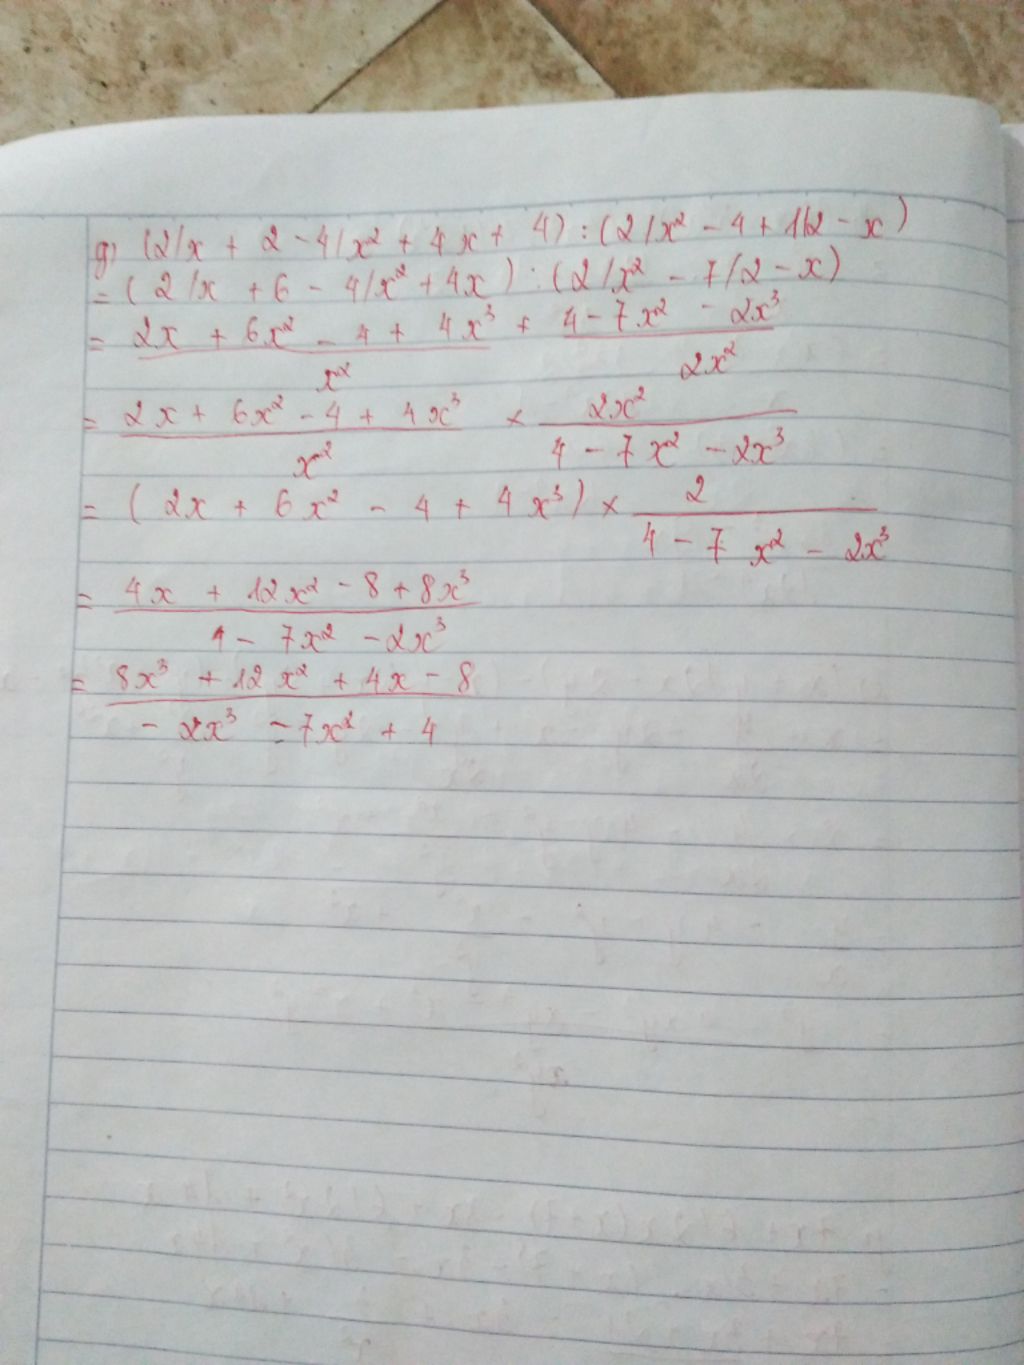 g) (2/x + 2 - 4/x² + 4x + 4) : (2/x² - 4 + 1/2 - x)
= (2/x + 6 - 4/x² + 4x) : (2/x² - 7/2 - x)
= (2x + 6x² - 4 + 4x³)/x² + (4 - 7x² - 2x³)/2x²
= (2x + 6x² - 4 + 4x³)/x² × 2x²/(4 - 7x² - 2x³)
= (2x + 6x² - 4 + 4x³) × 2/(4 - 7x² - 2x³)
= (4x + 12x² - 8 + 8x³)/(4 - 7x² - 2x³)
= (8x³ + 12x² + 4x - 8)/(- 2x³ - 7x² + 4)